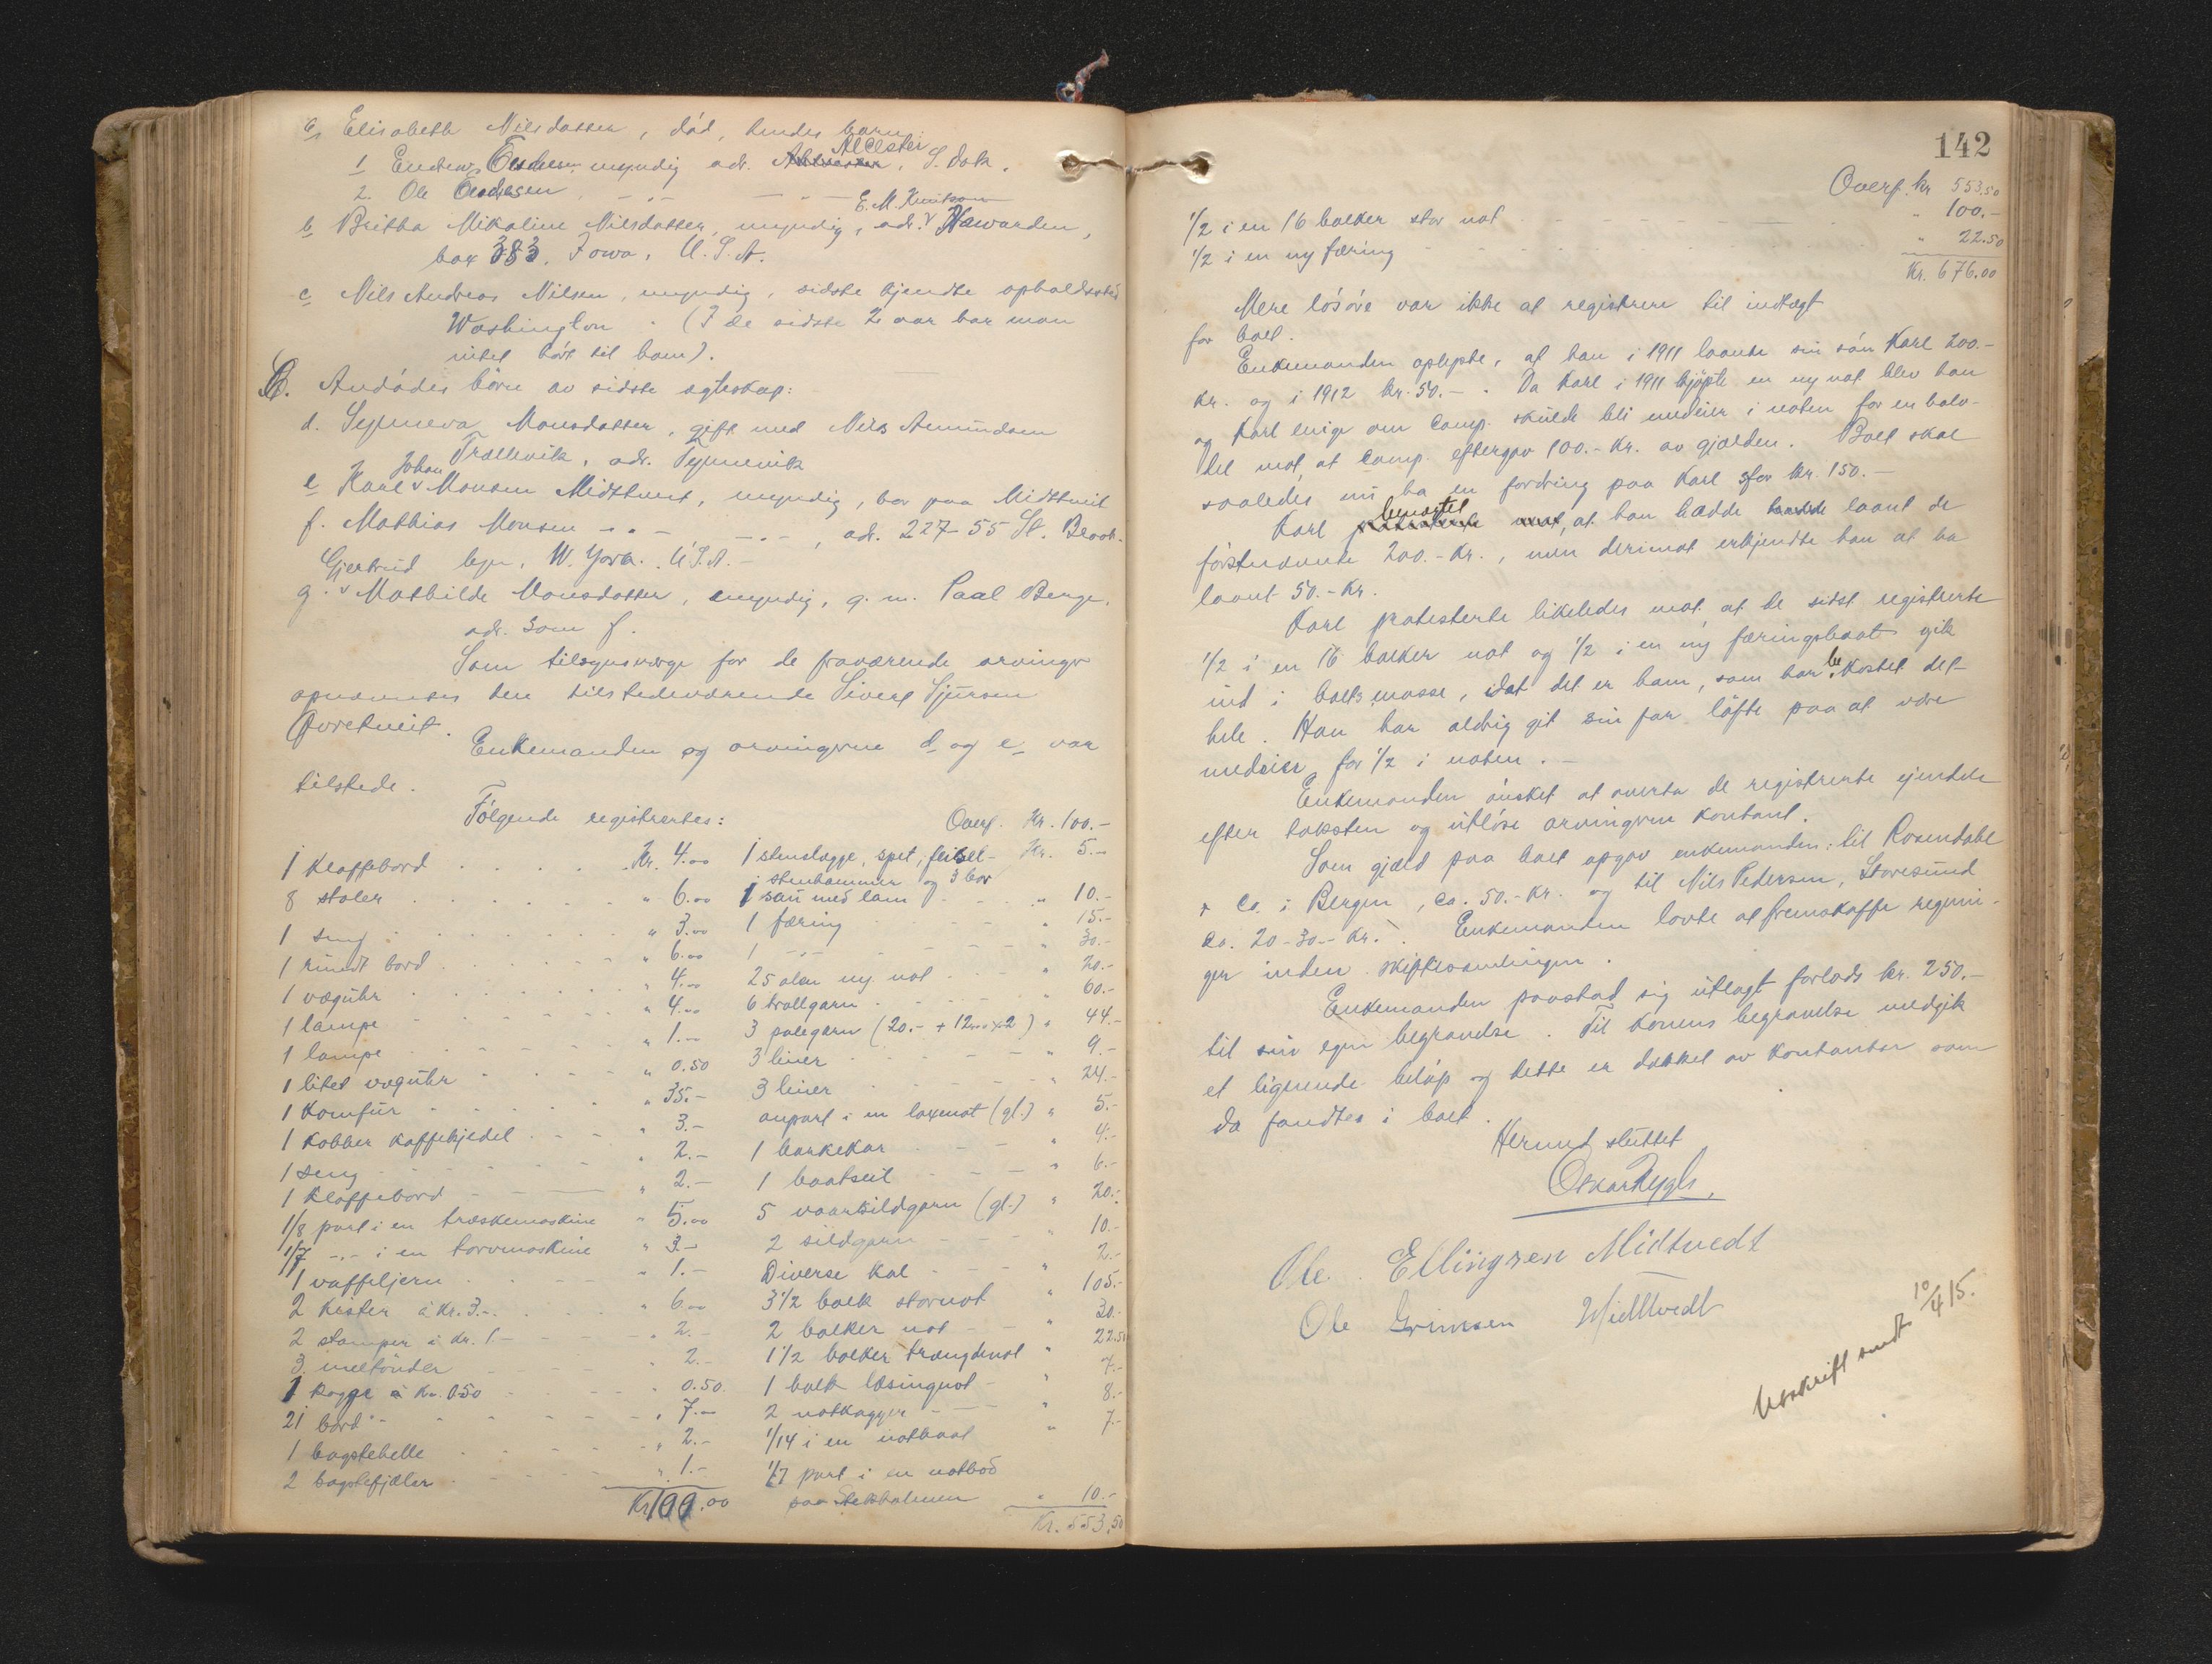 a, Elisabeth Nilsdatter, död, hendes barn:
1 Endre Endresen myndig adr. Alcester, S. Dak.
2. Ole Endresen, -„- -„-
E. M. Knutson
b, Britha Mikaline Nilsdatter, myndig, adr. Hawarden,
box 383, Iowa, U.S.A.
c, Nils Andreas Nilsen, myndig, sidste kjendte opholdssted
Washington. (I de sidste 2 aar har man
intet hört til ham).
B. Avdödes börn av sidste egteskap:
d. Synneva Monsdatter, gift med Nils Amundsen
Trællevik, adr. Tysnesvik
e Karl Johan Monsen Midttveit, myndig, bor paa Midttveit
f. Mathias Monsen -„- -„-, adr. 227-55 St. Brook-
lyn, N. York. U.S.A.-
g. Gjertrud Mathilde Monsdatter, myndig, g. m. Paal Berge,
adr. som f.
Som tilsynsverge for de fraværende arvinger
opnævnes den tilstedeværende Sivert Sjursen
Övretveit.
Enkemanden og arvingerne d og e var
tilstede.
Fölgende registrertes:
1 klaffebord Kr. 4.00
8 stoler " 6.00
1 seng " 3.00
1 rundt bord " 6.00
1 vægühr " 4.00
1 lampe " 4.00
1 lampe " 1.00
1 litet vægühr " 0.50
1 komfür " 35.-
1 kobber kaffekjedel " 3.-
1 seng " 2.-
1 klaffebord " 2.-
1/8 part i en træskemaskine " 5.00
1/7 -„- i en torvmaskine " 3.-
1 vaffeljern " 1.-
2 kister à kr. 3.- " 6.00
2 stamper à kr. 1- " 2.-
3 meltönder " 2.-
1 kagge à kr. 0.50 " 0.50
21 bord " 7.00
1 bagstehelle " 2.-
2 bagstefjæler " 1.-
Kr. 100.00
Overf. Kr. 100.-
1 stenslægge, spet, feisel- Kr. 5.-
stenhammer og 3 bor
1 sau med lam " 10.-
1 færing " 15.-
1 -„- " 30.-
25 alen ny not " 20.-
6 trollgarn " 60.-
3 palegarn (20.- + 12.00 x 2) " 44.-
3 liner " 9.-
3 liner " 24.-
anpart i en laxenot (gl.) " 5.-
1 barkekar " 4.-
1 baatseil " 6.-
5 vaarsildgarn (gl.) " 20.-
2 sildgarn " 10.-
Diverse kal " 2.-
3 1/2 bolk stornot " 105.-
2 bolker not " 30.-
1 1/2 bolker trængdenot " 22.50
1 bolk læsingnot " 7.-
2 notkagger " 8.-
1/14 i en notbaat " 7.-
1/7 part i en notbod
paa Flekholmen " 10.-
Kr. 553.50
142
Overf. kr 553.50
1/2 i en 16 bolker stor not " 100.-
1/2 i en ny færing " 22.50
Kr. 676.00
Mere lösöre var ikke at registrere til indtægt
for boet.
Enkemanden oplyste, at han i 1911 laante sin sön Karl 200.-
kr. og i 1912 kr. 50.-. Da Karl i 1911 kjöpte en ny not blev han
og Karl enige om Comp. skulde bli medeier i noten for en halv-
del mot, at Comp. eftergav 100.- kr. av gjælden. Boet skal
saaledes nu ha en fordring paa Karl sfor kr. 150.-
Karl benægtet, at han hadde laant de
förstnævnte 200.- kr., men derimot erkjendte han at ha
laant 50.- kr.
Karl protesterte likeledes mot, at de sidst registrerte
1/2 i en 16 bolker not og 1/2 i en ny færingsbaat gik
ind i boets masse, idet det er ham, som har bekostet det
hele. Han har aldrig git sin far löfte paa at være
medeier for 1/2 i noten.-
Enkemanden önsket at overta de registrerte ejendele
efter taksten og utlöse arvingerne kontant.
Som gjæld paa boet opgav enkemanden: til Rosendahl
& Co. i Bergen, ca. 50.- kr. og til Nils Pedersen, Storesund
ca. 20-30.- kr. Enkemanden lovte at fremskaffe regnin-
ger inden skiftesamlingen.
Enkemanden paastod sig utlagt forlods kr. 250.-
til sin egen begravelse. Til konens begravelse medgik
et lignende belöp og dette er dækket av kontanter som
da fandtes i boet.
Hermed sluttet
Oskar Rygh.
Ole Ellingsen Midtvedt
Ole Grimsen Midttvedt
Utskrift sendt 10/4 15.